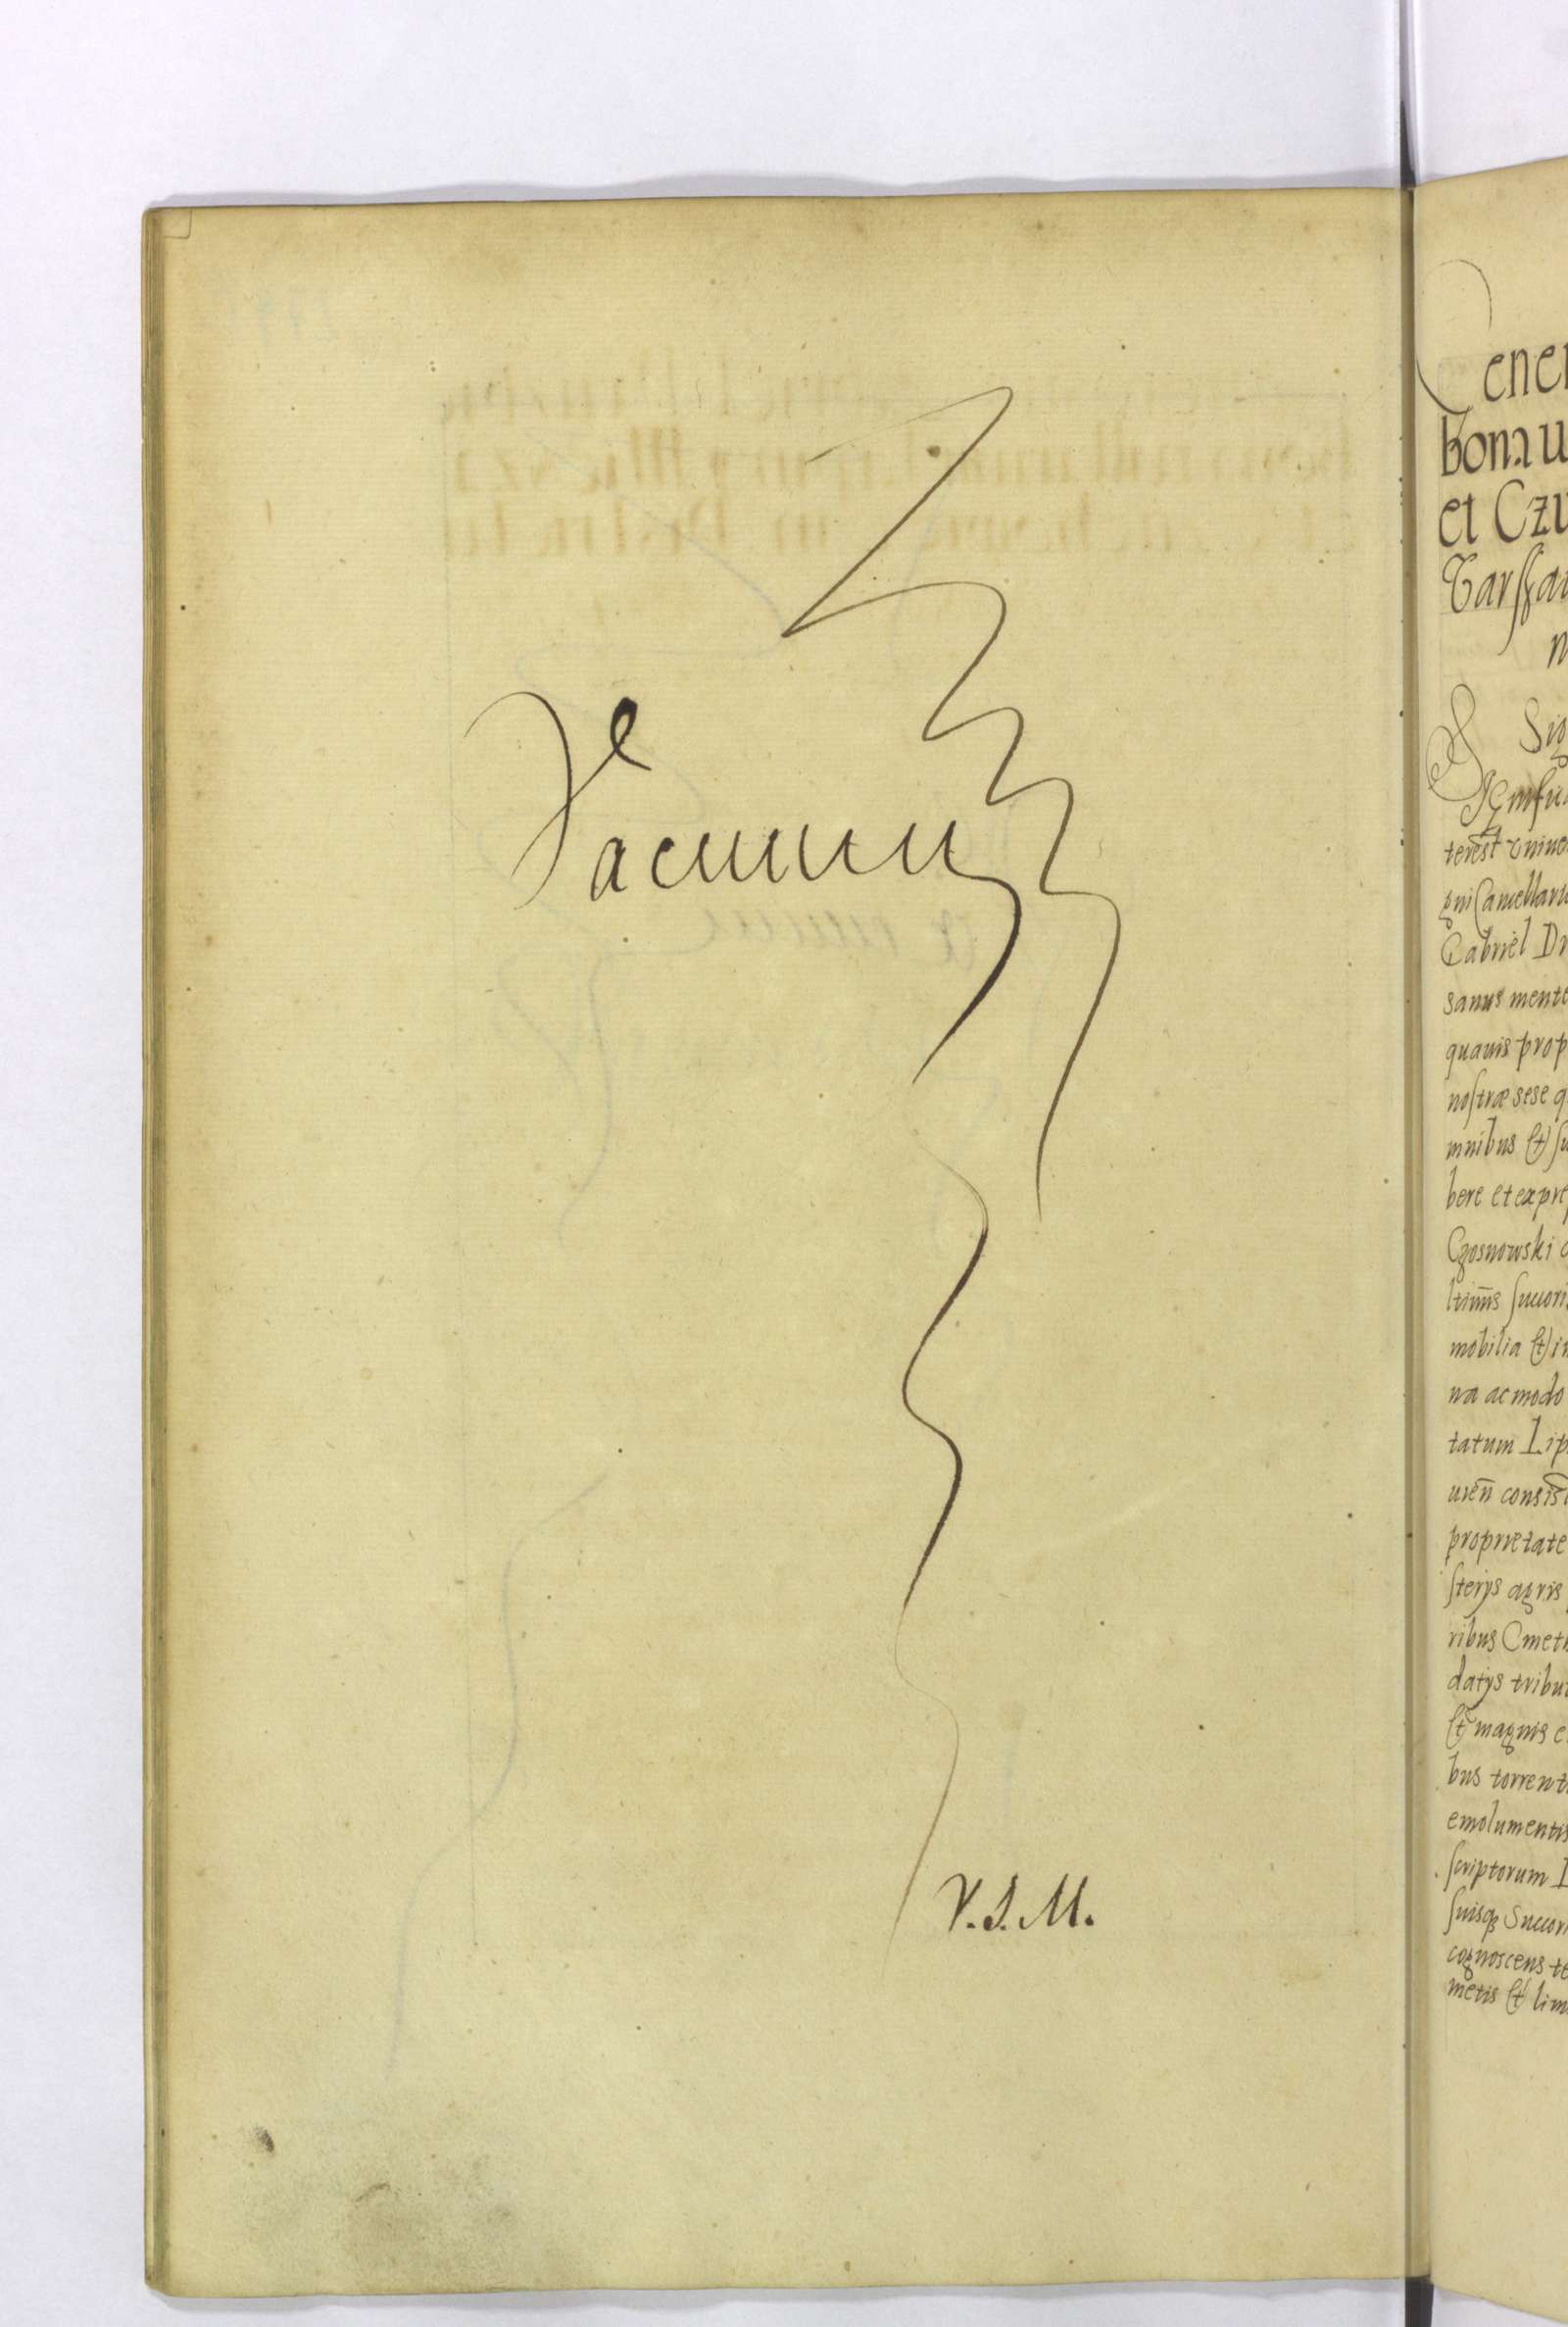 Vacuum
V.S.M.
ener
bona u
et Czu
Tarssa
Sig
terest
Gabriel Dr
sanus mente
quauis prop
nostræ sese q
mnibus et su
bere et expre
Czosnowski
mobilia et i
na ac modo
tatum Lip
consist
proprietate
sterys agris
ribus Cmet
datys tribu
et magnis e
bus torrent
emolumentis
scriptorum
suisq3 Succor
cognoscens te
metis et lim